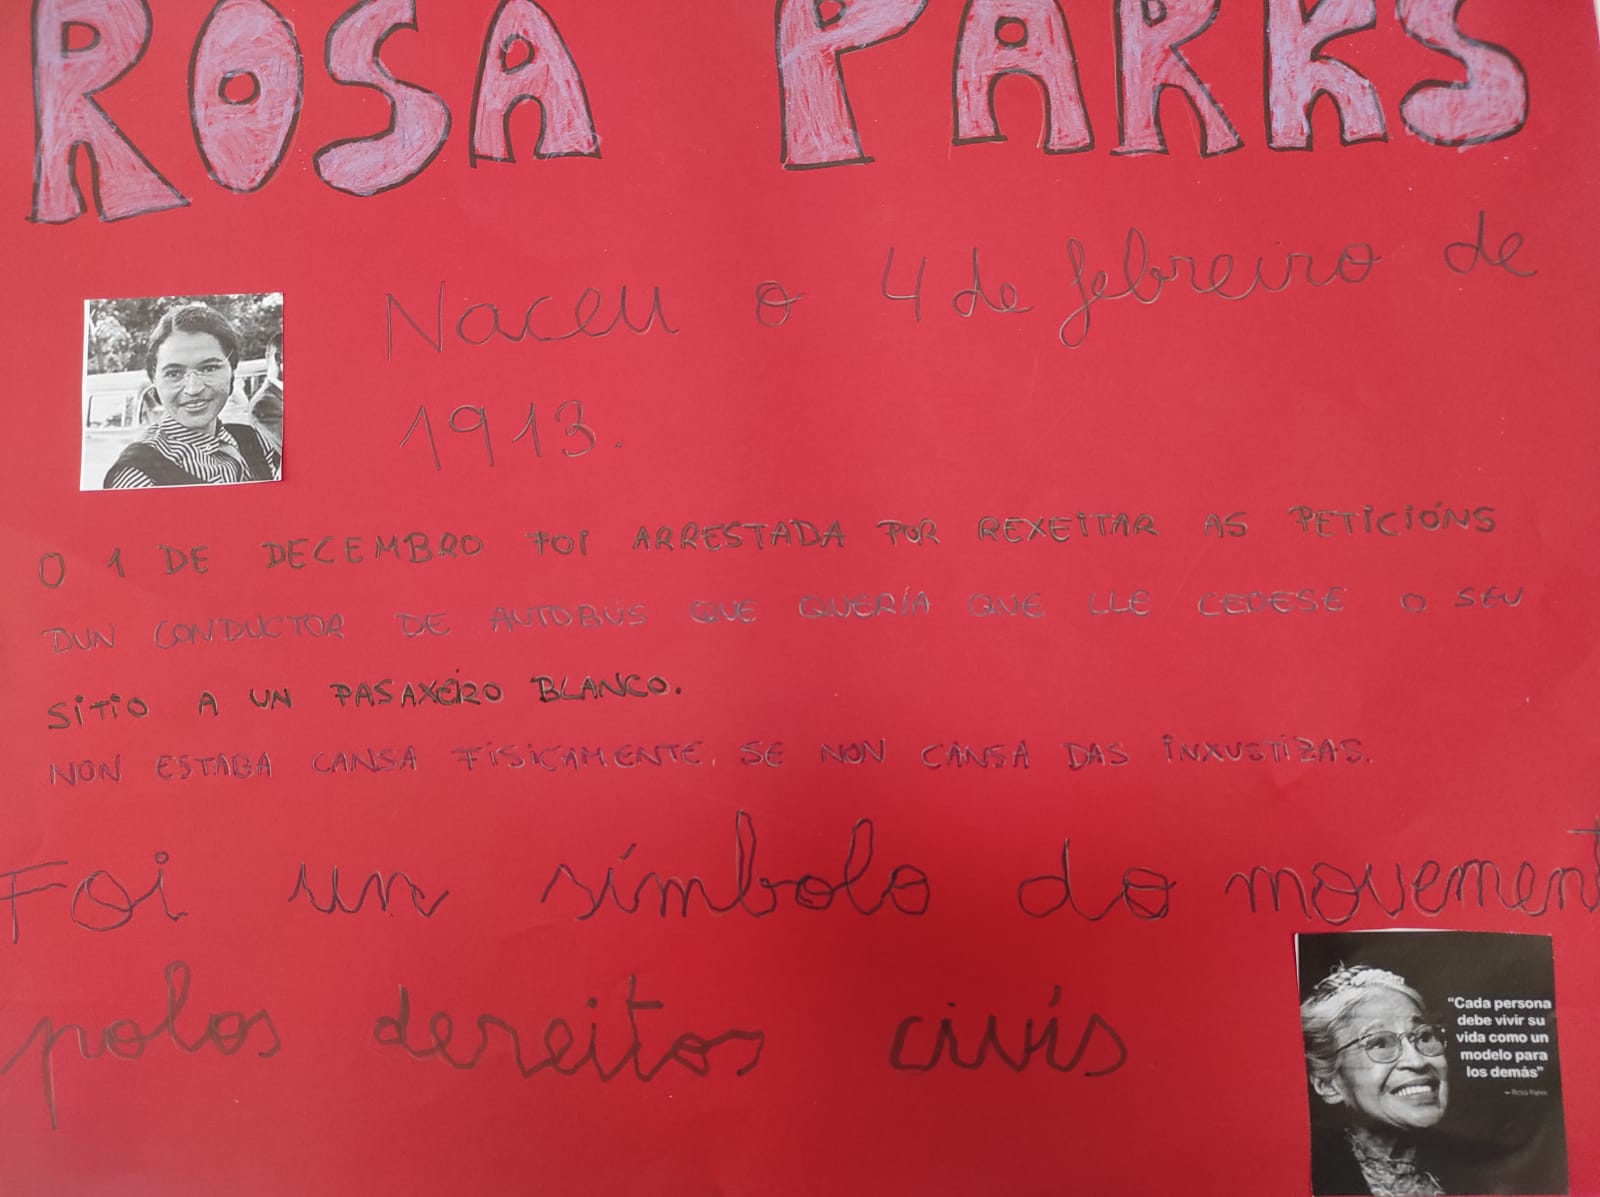 ROSA PARKS
Naceu o 4 de febreiro de
1913.
O 1 DE DECEMBRO FOI ARRESTADA POR REXEITAR AS PETICIÓNS
DUN CONDUCTOR DE AUTOBÚS QUE QUERÍA QUE LLE CEDESE O SEU
SITIO A UN PASAXEIRO BLANCO.
NON ESTABA CANSA FISICAMENTE, SE NON CANSA DAS INXUSTIZAS.
Foi un símbolo do movement
polos dereitos civís
"Cada persona
debe vivir su
vida como un
modelo para
los demás"
– Rosa Parks